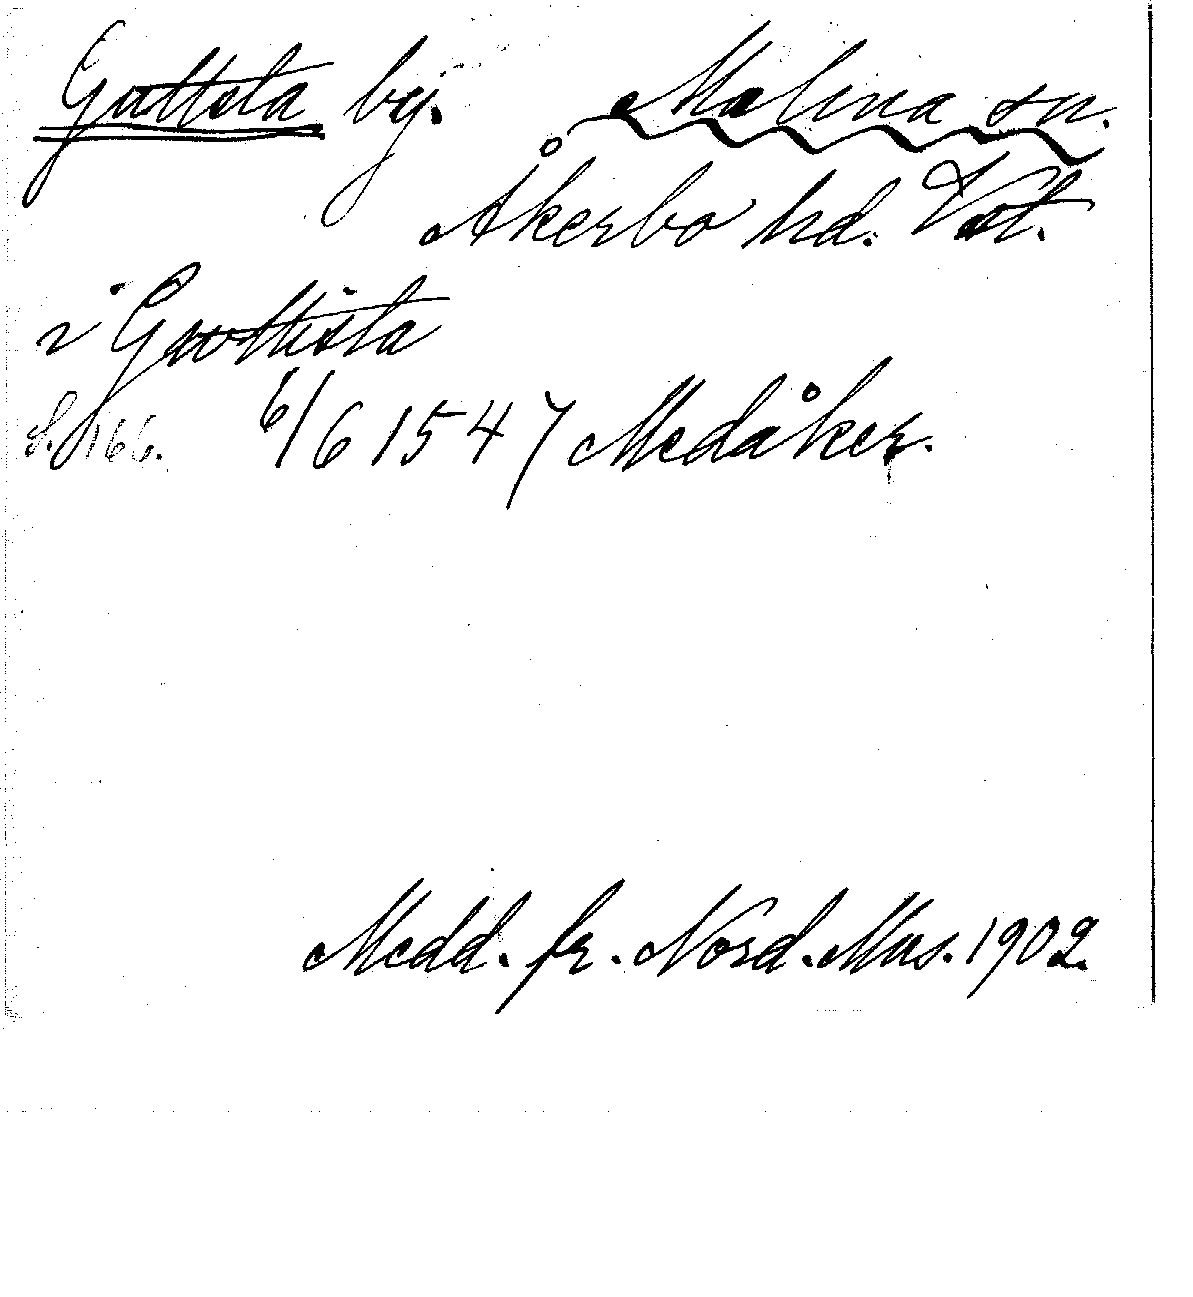 Guttsta by. Malma sn.
Åkerbo hd. Vstl.
i Guttista
S. 166. 6/6 1547 Medåker.
Medd. fr. Nord. Mus. 1902.